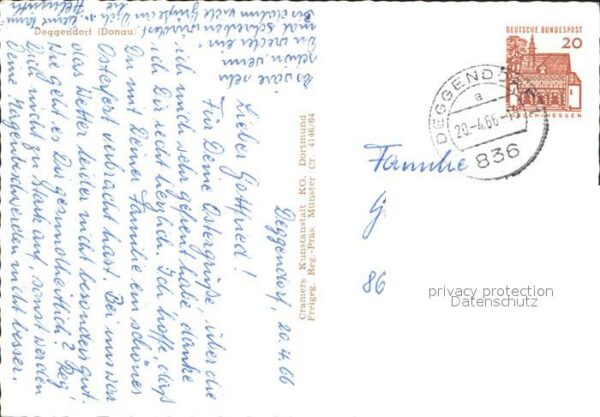 Deggendorf (Donau)
Deggendorf, 20.4.66
Lieber Gottfried!
Für Deine Ostergrüße, über die
ich mich sehr gefreut habe danke
ich Dir recht herzlich. Ich hoffe, daß
Du mit Deiner Familie ein schönes
Osterfest verbracht hast. Bei uns war
das Wetter leider nicht besonders gut.
Wie geht es Dir gesundheitlich? Reg
Dich nicht zu stark auf, sonst werden
Deine Magenbeschwerden nicht besser.
Es wäre sehr
schön wenn
Du wieder ein-
mal schreiben würdest.
viele Grüße an Dich u.
Cramers Kunstanstalt KG. Dortmund
Freigeg. Reg.-Präs. Münster Cr. 4146/64
DEUTSCHE BUNDESPOST
20
DEGGENDORF
a
20.-4.66-
836
Familie
G
86
privacy protection
Datenschutz